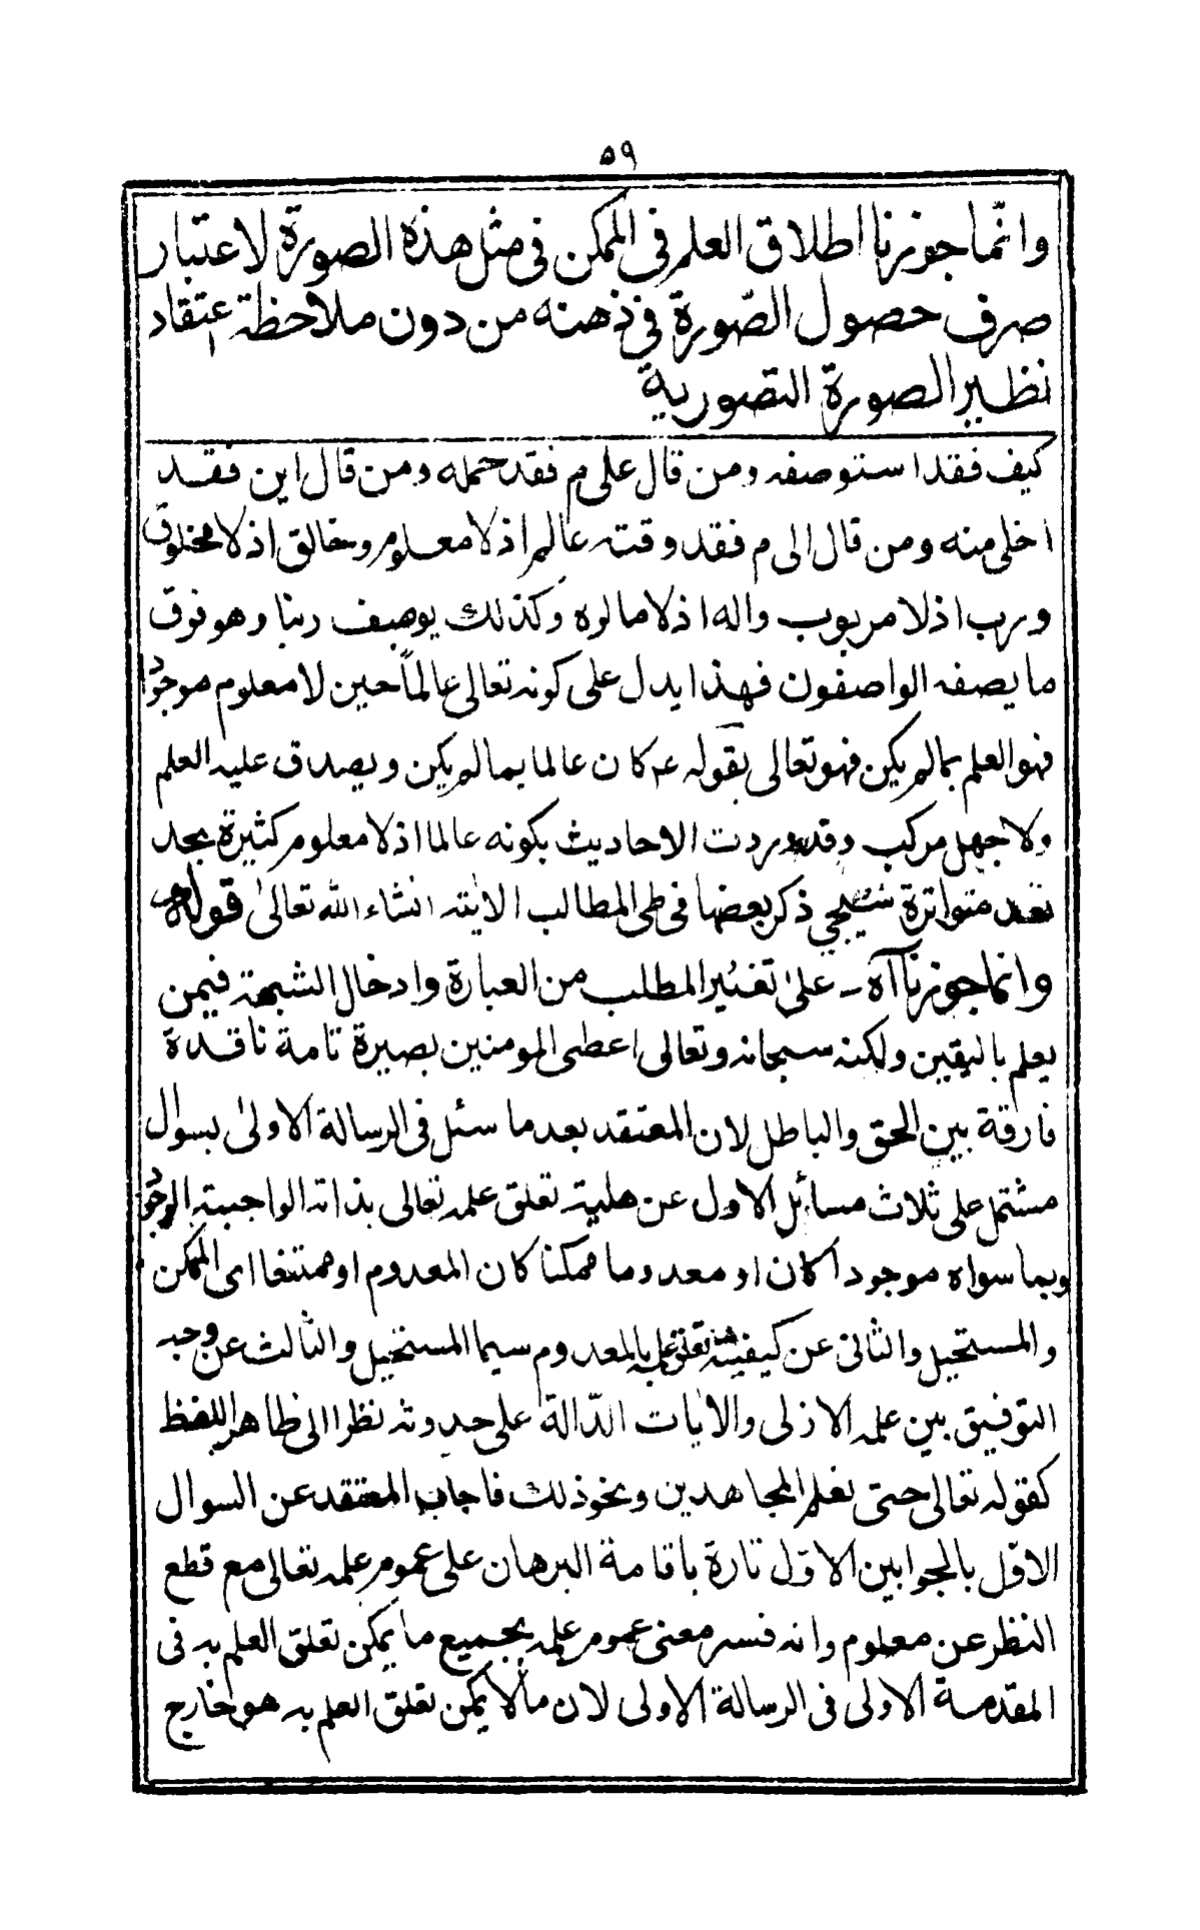 ٥٩
وانّما جوزنا اطلاق العلم فى الممكن فى مثل هذه الصورة لاعتبار
صرف حصول الصّورة فى ذهنه من دون ملاحظة اعتقاد
نظير الصورة التصورية
كيف فقد استوصفه ومن قال على م فقد حمله ومن قال اين فقد
اخلى منه ومن قال الى م فقد وقته عالم اذ لا معلوم وخالق اذ لا مخلوق
ورب اذ لا مربوب واله اذ لا مالوه وكذلك يوصف ربنا وهو فوق
ما يصفه الواصفون فهذا يدل على كونه تعالى عالماً حين لا معلوم موجود
فهو العلم بمالم يكن فهو تعالى بقوله عم كان عالما بمالم يكن ويصدق عليه العلم
ولا جهل مركب وقد وردت الاحاديث بكونه عالما اذ لا معلوم كثيرة بحد
تعد متواترة سيجى ذكر بعضها فى طى المطالب الاٰتيه انشاء الله تعالىٰ قوله
وانما جوزنا آه - علىٰ تغيير المطلب من العبارة وادخال الشبهة فيمن
يعلم باليقين ولكنه سبحانه وتعالى اعطى المومنين بصيرة تامة ناقدة
فارقة بين الحق والباطل لان المعتقد بعد ما سئل فى الرسالة الاولىٰ بسوال
مشتمل على ثلاث مسائل الاول عن هلية تعلق علمه تعالى بذاته الواجبية الوجود
وبما سواه موجودا كان او معدوما ممكنا كان المعدوم او ممتنعا اى الممكن
والمستحيل والثانى عن كيفية تعلق علمه بالمعدوم سيما المستحيل والثالث عن وجه
التوفيق بين علمه الازلى والاٰيات الدّالة على حدوثه نظرا الى ظاهر اللفظ
كقوله تعالى حتى نعلم المجاهدين ونحو ذلك فاجاب المعتقد عن السوال
الاوّل بالجوابين الاوّل تارة باقامة البرهان على عموم علمه تعالى مع قطع
النظر عن معلوم وانه فسر معنى عموم علمه بجميع ما يمكن تعلق العلم به فى
المقدمة الاولى فى الرسالة الاولى لان ما لا يمكن تعلق العلم به هو خارج